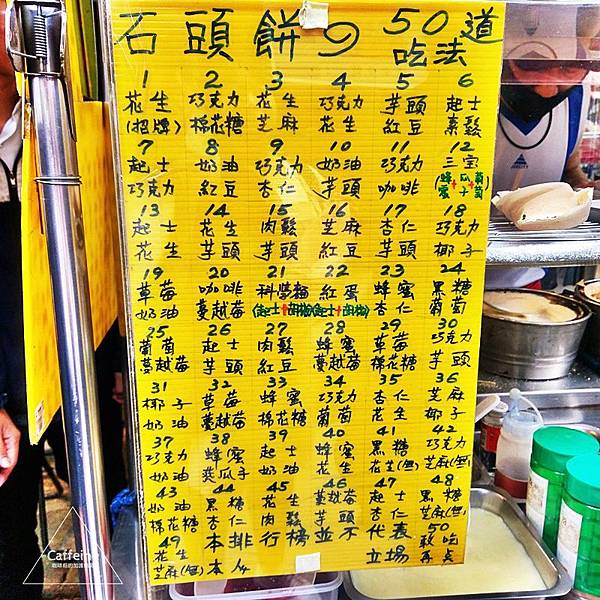 石頭餅の50道吃法
1 2 3 4 5 6
花生 巧克力 花生 巧克力 芋頭 起士
(招牌) 棉花糖 芝麻 花生 紅豆 素鬆
7 8 9 10 11 12
起士 奶油 巧克力 奶油 巧克力 三宝
巧克力 紅豆 杏仁 芋頭 咖啡
13 14 15 16 17 18
起士 花生 肉鬆 芝麻 杏仁 巧克力
花生 芋頭 芋頭 紅豆 芋頭 椰子
19 20 21 22 23 24
草莓 咖啡 紅蛋 蜂蜜 黑糖
奶油 蔓越莓 杏仁 葡萄
25 26 27 28 29 30
葡萄 起士 肉鬆 蜂蜜 草莓 巧克力
蔓越莓 芋頭 紅豆 蔓越莓 棉花糖 芋頭
31 32 33 34 35 36
椰子 草莓 蜂蜜 巧克力 杏仁 芝麻
奶油 蔓越莓 棉花糖 葡萄 花生 椰子
37 38 39 40 41 42
巧克力 蜂蜜 起士 蜂蜜 黑糖 巧克力
奶油 葵瓜子 奶油 花生 花生(無) 芝麻(無)
43 44 45 46 47 48
奶油 黑糖 花生 蔓越莓 起士 黑糖
棉花糖 杏仁 肉鬆 芋頭 杏仁 芝麻(無)
49 本排行榜並不代表 50
花生 本人立場 敢吃
芝麻(無) 再点
Caffeine